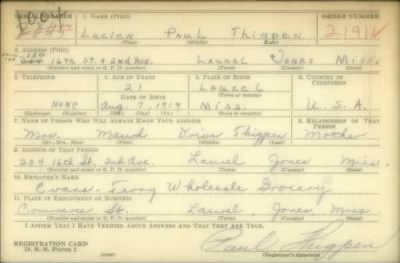 SERIAL NUMBER 1. NAME (Print) ORDER NUMBER
Lucien Paul Thigpen
(First) (Middle) (Last)
2. ADDRESS (Print)
16th St. & 2nd Ave. Laurel Jones Miss.
(Number and street or R. F. D. number) (Town) (County) (State)
3. TELEPHONE 4. AGE IN YEARS 5. PLACE OF BIRTH 6. COUNTRY OF CITIZENSHIP
21 Laurel
DATE OF BIRTH (Town or county)
None Aug. 7, 1919 Miss. U. S. A.
(Exchange) (Number) (Mo.) (Day) (Yr.) (State or country)
7. NAME OF PERSON WHO WILL ALWAYS KNOW YOUR ADDRESS 8. RELATIONSHIP OF THAT PERSON
Mrs. Maud Thigpen Mother
(Mr., Mrs., Miss) (First) (Middle) (Last)
9. ADDRESS OF THAT PERSON
204 16th St. 2nd Ave. Laurel Jones Miss.
(Number and street or R. F. D. number) (Town) (County) (State)
10. EMPLOYER'S NAME
Evans-Terry Wholesale Grocery
11. PLACE OF EMPLOYMENT OR BUSINESS
Commerce St. Laurel, Jones, Miss
(Number and street or R. F. D. number) (Town) (County) (State)
I AFFIRM THAT I HAVE VERIFIED ABOVE ANSWERS AND THAT THEY ARE TRUE.
REGISTRATION CARD
D. S. S. Form 1
Paul Thigpen
(Registrant's signature)